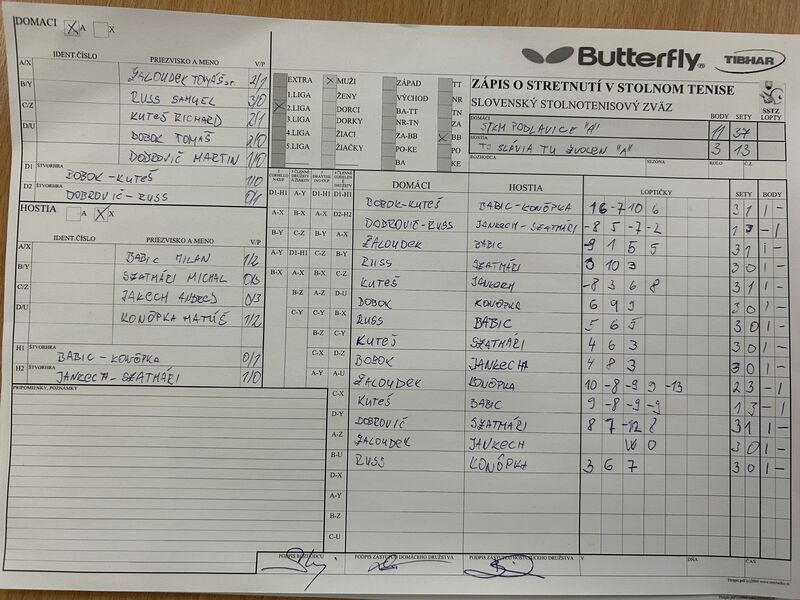 DOMACI X A X
Butterfly® TIBHAR
IDENT.ČÍSLO PRIEZVISKO A MENO V/P
A/X ŽALOUDEK TOMÁŠ st. 2/1
B/Y RUSS SAMUEL 3/0
C/Z KUTEŠ RICHARD 2/1
D/U BOBOK TOMÁŠ 2/0
DOBROVIČ MARTIN 1/0
D1 ŠTVORHRA BOBOK - KUTEŠ 1/0
D2 ŠTVORHRA DOBROVIČ - RUSS 0/1
EXTRA X MUŽI ZÁPAD TT
1.LIGA ŽENY VÝCHOD NR
X 2.LIGA DORCI BA-TT TN
3.LIGA DORKY NR-TN ZA
4.LIGA ŽIACI ZA-BB X BB
5.LIGA ŽIAČKY PO-KE PO
BA KE
ZÁPIS O STRETNUTÍ V STOLNOM TENISE
SLOVENSKÝ STOLNOTENISOVÝ ZVÄZ SSTZ
DOMÁCI STKM PODLAVICE "A" BODY 11 SETY 37
HOSTIA SLÁVIA TU ZVOLEN "A" 3 13
ROZHODCA SEZÓNA KOLO Č.Z.
HOSTIA A X X
IDENT.ČÍSLO PRIEZVISKO A MENO V/P
A/X BABIC MILAN 1/2
B/Y SZATMÁRI MICHAL 0/3
C/Z JANKECH ANDREJ 0/3
D/U KONÔPKA MATÚŠ 1/2
H1 ŠTVORHRA BABIC - KONÔPKA 0/1
H2 ŠTVORHRA JANKECH - SZATMÁRI 1/0
PRIPOMIENKY, POZNÁMKY
DOMÁCI HOSTIA LOPTIČKY SETY BODY
D1-H1 A-Y D1-H1 D1-H1 BOBOK-KUTEŠ BABIC-KONÔPKA 16 -7 10 6 3 1 1 -
A-X B-X A-X D2-H2 DOBROVIČ-RUSS JANKECH-SZATMÁRI -8 5 -7 -2 1 3 - 1
B-Y C-Z B-Y A-X ŽALOUDEK BABIC 9 1 5 5 3 1 1 -
A-Y D1-H1 C-Z B-Y RUSS SZATMÁRI 3 10 3 3 0 1 -
B-X A-X A-Y C-Z KUTEŠ JANKECH -8 3 6 8 3 1 1 -
B-Z A-Z D-U BOBOK KONÔPKA 6 9 9 3 0 1 -
C-Y C-Y B-X RUSS BABIC 5 6 5 3 0 1 -
B-Z C-Y KUTEŠ SZATMÁRI 4 6 3 3 0 1 -
C-X D-Z BOBOK JANKECH 4 8 3 3 0 1 -
A-Y A-U ŽALOUDEK KONÔPKA 10 -8 -9 9 -13 2 3 - 1
C-X KUTEŠ BABIC 9 -8 -9 -9 1 3 - 1
D-Y DOBROVIČ SZATMÁRI 8 7 -12 8 3 1 1 -
A-Z ŽALOUDEK JANKECH W O 3 0 1 -
B-U RUSS KONÔPKA 3 6 7 3 0 1 -
D-X
A-Y
B-Z
C-U
PODPIS ROZHODCU PODPIS ZÁSTUPCU DOMÁCEHO DRUŽSTVA PODPIS ZÁSTUPCU HOSŤUJÚCEHO DRUŽSTVA V DŇA ČAS